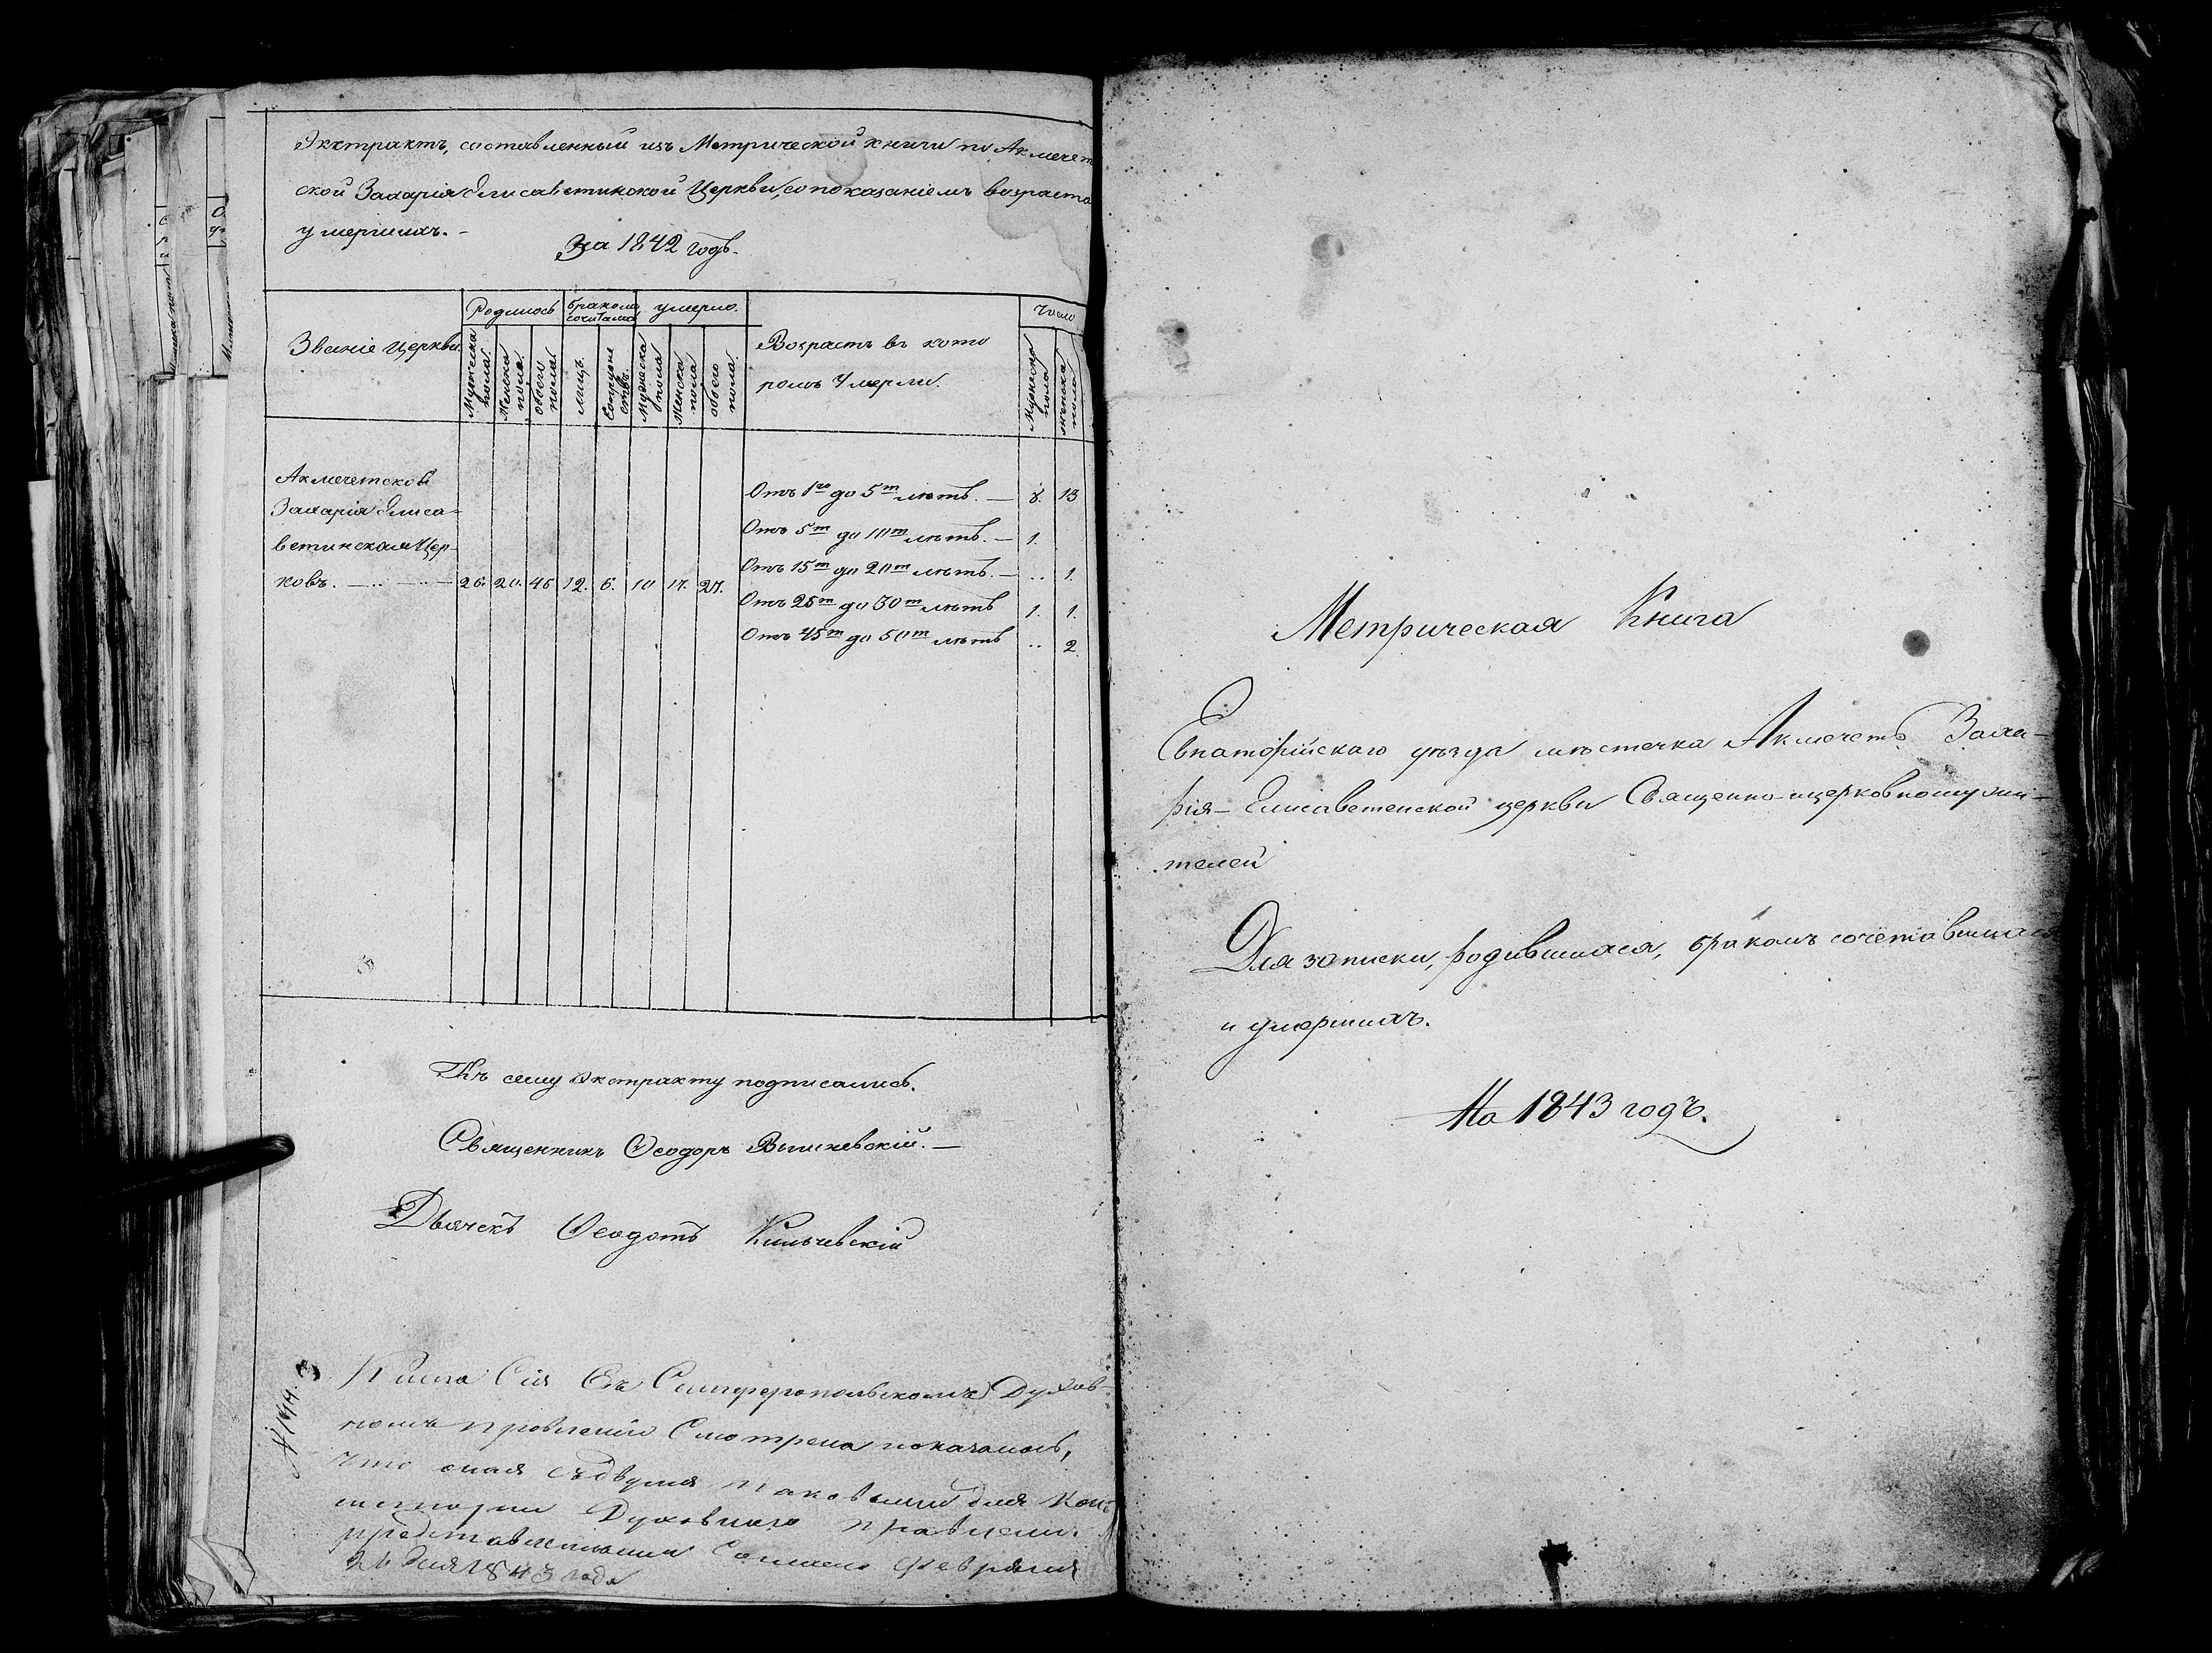 Экстрактъ, составленный изъ Метрической книги по Акмечет
ской Захарія Елисаветинской Церкви, со показаніемъ возраста
умершихъ.-
За 1842 годъ.
Званіе церкви.
Родилось
Мужеска пола.
Женска пола.
обоего пола
бракомъ сочеталось
лицъ.
Супруже ствъ.
умерло.
Мужеска пола
Женска пола
обоего пола.
Возрастъ въ кото
ромъ Умерли.
Число
Мужеска пола
женска пола
Акмечетской
Захарія Елиса=
ветинская Цер-
ковь.
26. 20. 46 12. 6. 10 17. 27.
Отъ 1го до 5т лѣтъ. — 8. 13
Отъ 5т до 10т лѣтъ. — 1.
Отъ 15т до 20т лѣтъ. — .. 1.
Отъ 25т до 30т лѣтъ 1. 1.
Отъ 45т до 50т лѣтъ .. 2.
Къ сему Экстракту подписались.
Священникъ Ѳеодоръ Вышневскій. —
Дьячекъ Ѳеодотъ Кильчевскій
Книга Сія Въ Симферопольскомъ Духов-
номъ правленіи Смотрена показалось,
что оная съ двумя таковыми для Конс
исторіи Духовнаго правлени.
представленными Согласна Февраля
дня 1843 года
Метрическая Книга
Евпаторійскаго уѣзда мѣстечка Акмечеть Заха-
рія-Елисаветенской церкви Священно-церковнослужи-
телей
Для записки, родившихся, бракомъ сочетавшихся
и умершихъ.
На 1843 годъ.